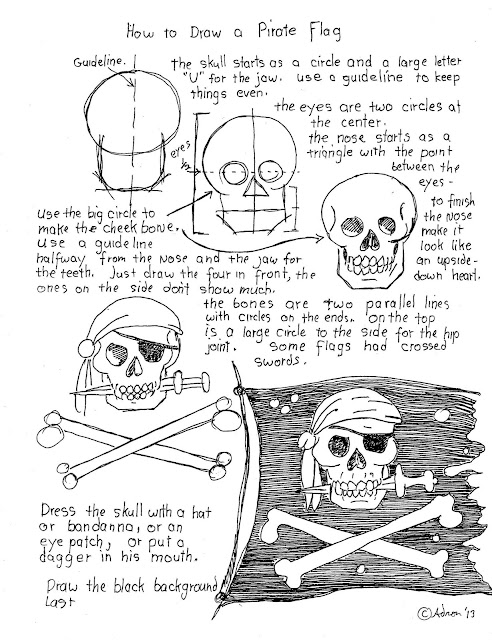 How to Draw a Pirate Flag
Guideline.
the skull starts as a circle and a large letter
"U" for the jaw. use a guideline to keep
things even.
the eyes are two circles at
the center.
the nose starts as a
triangle with the point
between the
eyes -
eyes
½
to finish
the Nose
make it
look like
an upside-
down heart.
Use the big circle to
make the cheek bone.
Use a guideline
halfway from the Nose and the jaw for
the teeth. Just draw the four in front, the
ones on the side don't show much.
the bones are two parallel lines
with circles on the ends. on the top
is a large circle to the side for the hip
joint. Some flags had crossed
swords.
Dress the skull with a hat
or bandanna, or an
eye patch, or put a
dagger in his mouth.
Draw the black background
Last
© Adron '13